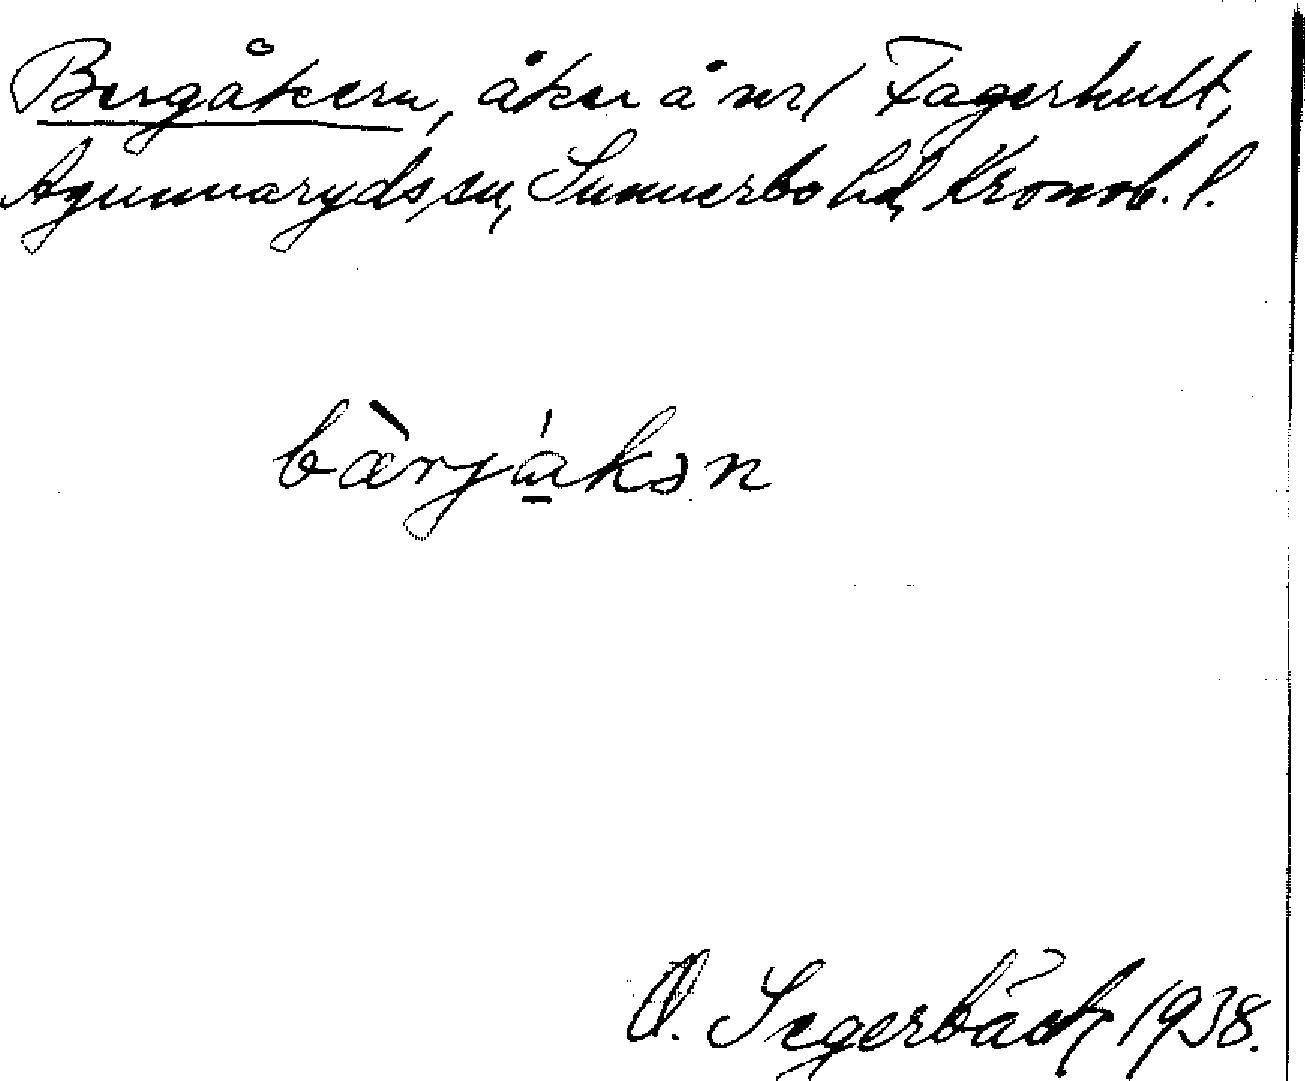 Bergåkern, åker å nr 1 Fagerhult,
Agunnaryds sn, Sunnerbo hd, Kronob. l.
bæ̀rjákən
O. Segerbäck 1938.